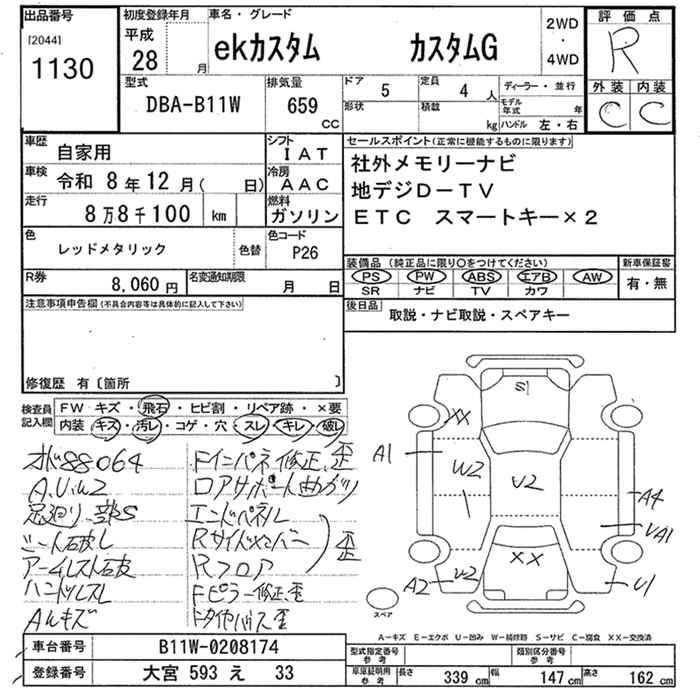 出品番号 初度登録年月 車名・グレード 2WD ・ 4WD 評価点
[2044] 平成
1130 28 月 ekカスタム カスタムG R
型式 排気量 ドア 5 定員 4 人 ディーラー・並行 外装 内装
DBA-B11W 659 cc 形状 積載 kg モデル年式 年 C C
ハンドル 左・右
車歴 自家用 シフト IAT セールスポイント(正常に機能するものに限ります)
車検 令和 8年12月( 日) 冷房 AAC 社外メモリーナビ
走行 8万8千100 km 燃料 ガソリン 地デジD-TV
ETC スマートキー×2
色 レッドメタリック 色替 色コード P26
装備品(純正品に限り〇をつけてください) 新車保証書
PS PW ABS エアB AW 有・無
SR ナビ TV カワ
R券 8,060円 名変通知期限 月 日
後日品 取説・ナビ取説・スペアキー
注意事項申告欄(不具合内容等は具体的に記入して下さい)
修復歴 有〔箇所 〕
検査員記入欄 FW キズ・飛石・ヒビ割・リペア跡・×要
内装 キズ・汚レ・コゲ・穴・スレ・キレ・破レ
オド88064 Fインパネ修正、歪
A.U.W2 ロアサポート曲ガリ
足廻り一部S エンドパネル
シート石破レ Rサイドメンバー
Rフロア 歪
ハンドルスレ Fピラー修正、歪
Aルキズ
S1
XX
A1
W2
U2
A4
UA1
XX
A2
W2
U1
スペア
A-キズ E-エクボ U-凹み W-補修跡 S-サビ C-腐食 XX-交換済
車台番号 B11W-0208174
型式指定番号 参考 類別区分番号 参考
登録番号 大宮 593 え 33
車庫証明用 参考 長さ 339 cm 幅 147 cm 高さ 162 cm